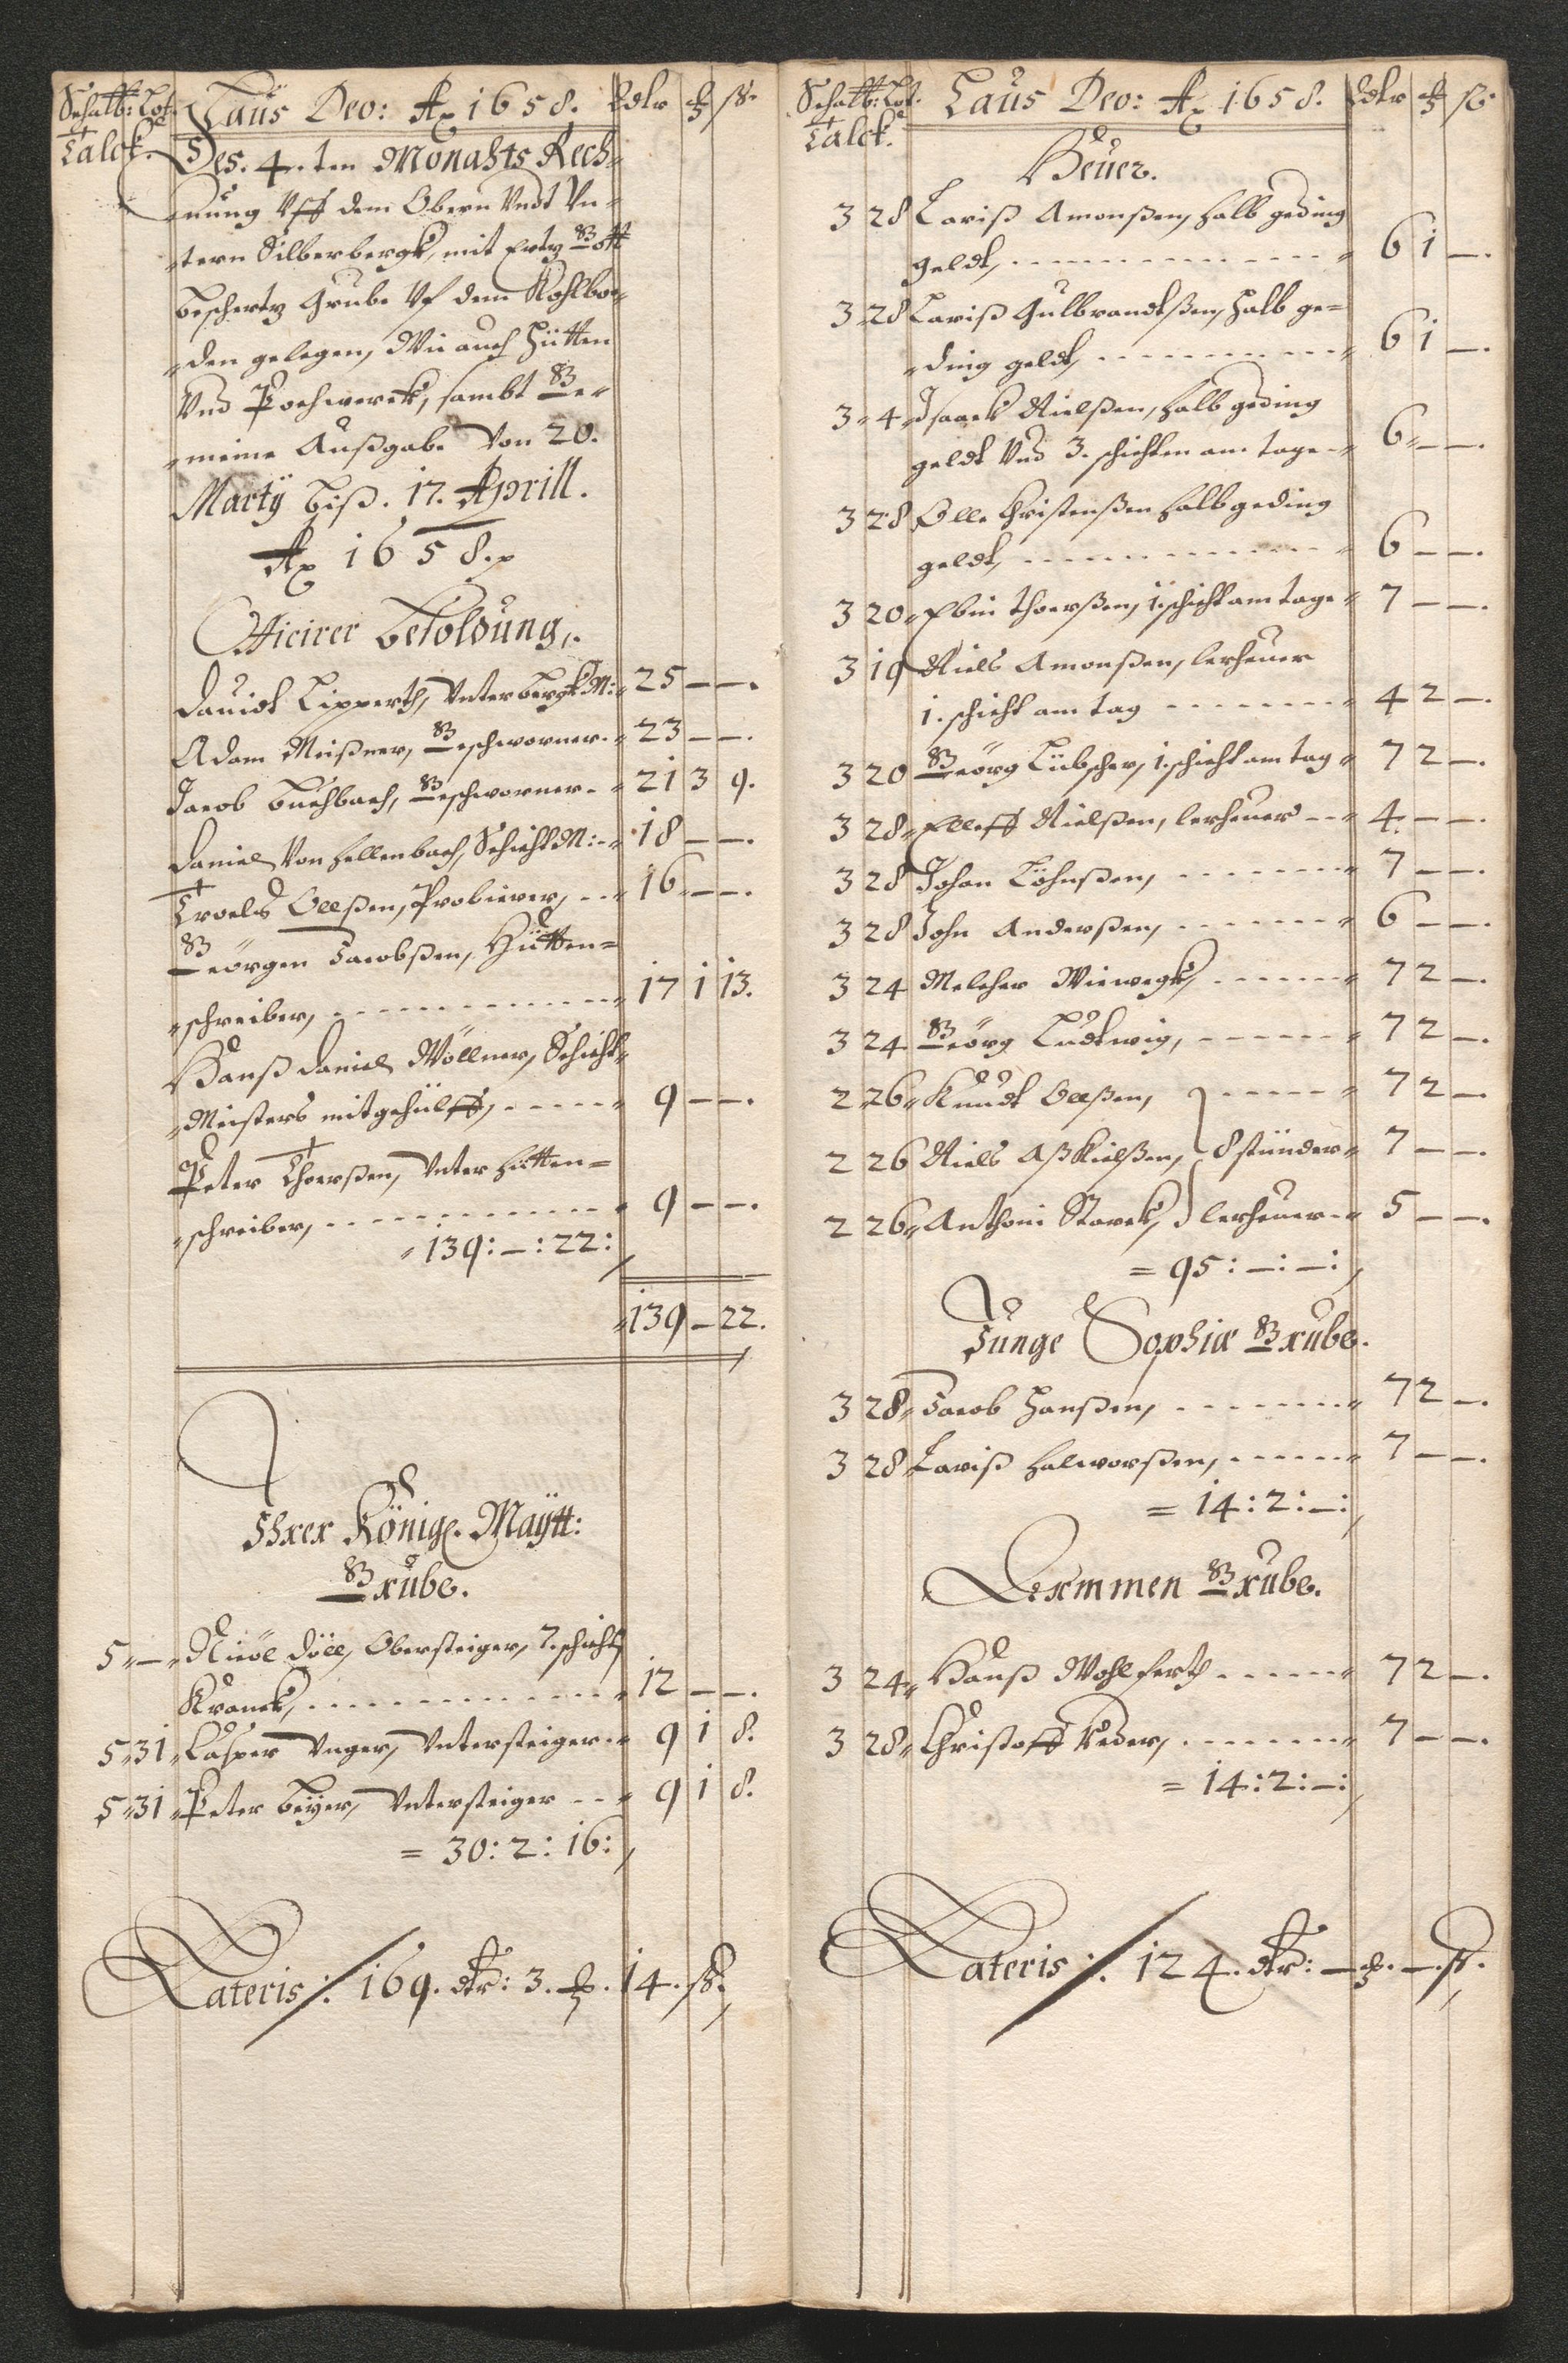 Schatt: Lot.
Talck.
Laus Deo: Ao 1658. Rdlr ß.
Des. 4.ten Monahts Rech-
nung Vff dem Obern Vndt Vn-
tern Silberbergk, mit Ertz Gott
beschertz Grube Vf dem Kohlbo-
den gelegen, Wie auch Hütten
Vnd Pochwerck, sambt Ge-
meine Außgabe Von 20.
Martÿ biß. 17. Aprill.
Ao 1658.
Officirer besoldung.
Dauidt Lipperth, Vnter bergk M: 25 — —.
Adam Meißner, Geschworner. 23 — —.
Jacob buchbach, Geschworner. 21 3 9.
Daniel Von Hellenbach, Schicht M: 18 — —.
Troels Olßen, Probierer, 16 — —.
Geörgen Jacobßen, Hütten=
schreiber, 17 1 13.
Hanß Daniel Wöllner, Schicht
Meisters mitgehülff, 9 — —.
Peter Thorßen, Vnter Hütten=
schreiber, 9 — —.
139: —: 22:
139 — 22.
Ihrer Königl. Maÿtt:
Grube.
5 — Nicol Döll, Obersteiger, 7. schicht
Kranck, 12 — —.
5 31 Casper Vnger, Vntersteiger 9 1 8.
5 31 Peter beÿer, Vntersteiger 9 1 8.
= 30: 2: 16:
Lateris: 169. dlr: 3. 14. ß.
Schatt: Lot.
Talck.
Laus Deo: Ao 1658. Rdlr ß.
Heuer.
3 28 Lariß Amonßen, halb geding
geldt, 6 1 —.
3 28 Lariß Gulbrandtßen, halb ge=
ding geldt, 6 1 —.
3 4 Isaack Nielßen, halb geding
geldt Vnd 3. schichten am tage 6 — —.
3 28 Olle Christenßen halb geding
geldt, 6 — —.
3 20 Ebin Thorßen, 1. schicht am tage 7 — —.
3 19 Niels Amonßen, lerheuer
1. schicht am tag 4 2 —.
3 20 Geörg Lübscher, 1. schicht am tag 7 2 —.
3 28 Elleff Nielßen, lerheuer 4 — —.
3 28 Johan Löhnßen, 7 — —.
3 28 John Anderßen, 6 — —.
3 24 Melcher Wiewegk, 7 2 —.
3 24 Geörg Ludtwig, 7 2 —.
2 26 Knudt Olßen, 7 2 —.
2 26 Niels Aßkielßen, 8 stünder 7 — —.
2 26 Anthoni Starck, lerheuer 5 — —.
= 95: —: —:
Junge Sophiæ Grube.
3 28 Jacob Hanßen, 7 2 —.
3 28 Lariß Halworßen, 7 — —.
= 14: 2: —:
Dexmmen Grube.
3 24 Hanß Wohlferth 7 2 —.
3 28 Christoff Reder, 7 — —.
= 14: 2: —:
Lateris: 124. dlr: — . — ß.